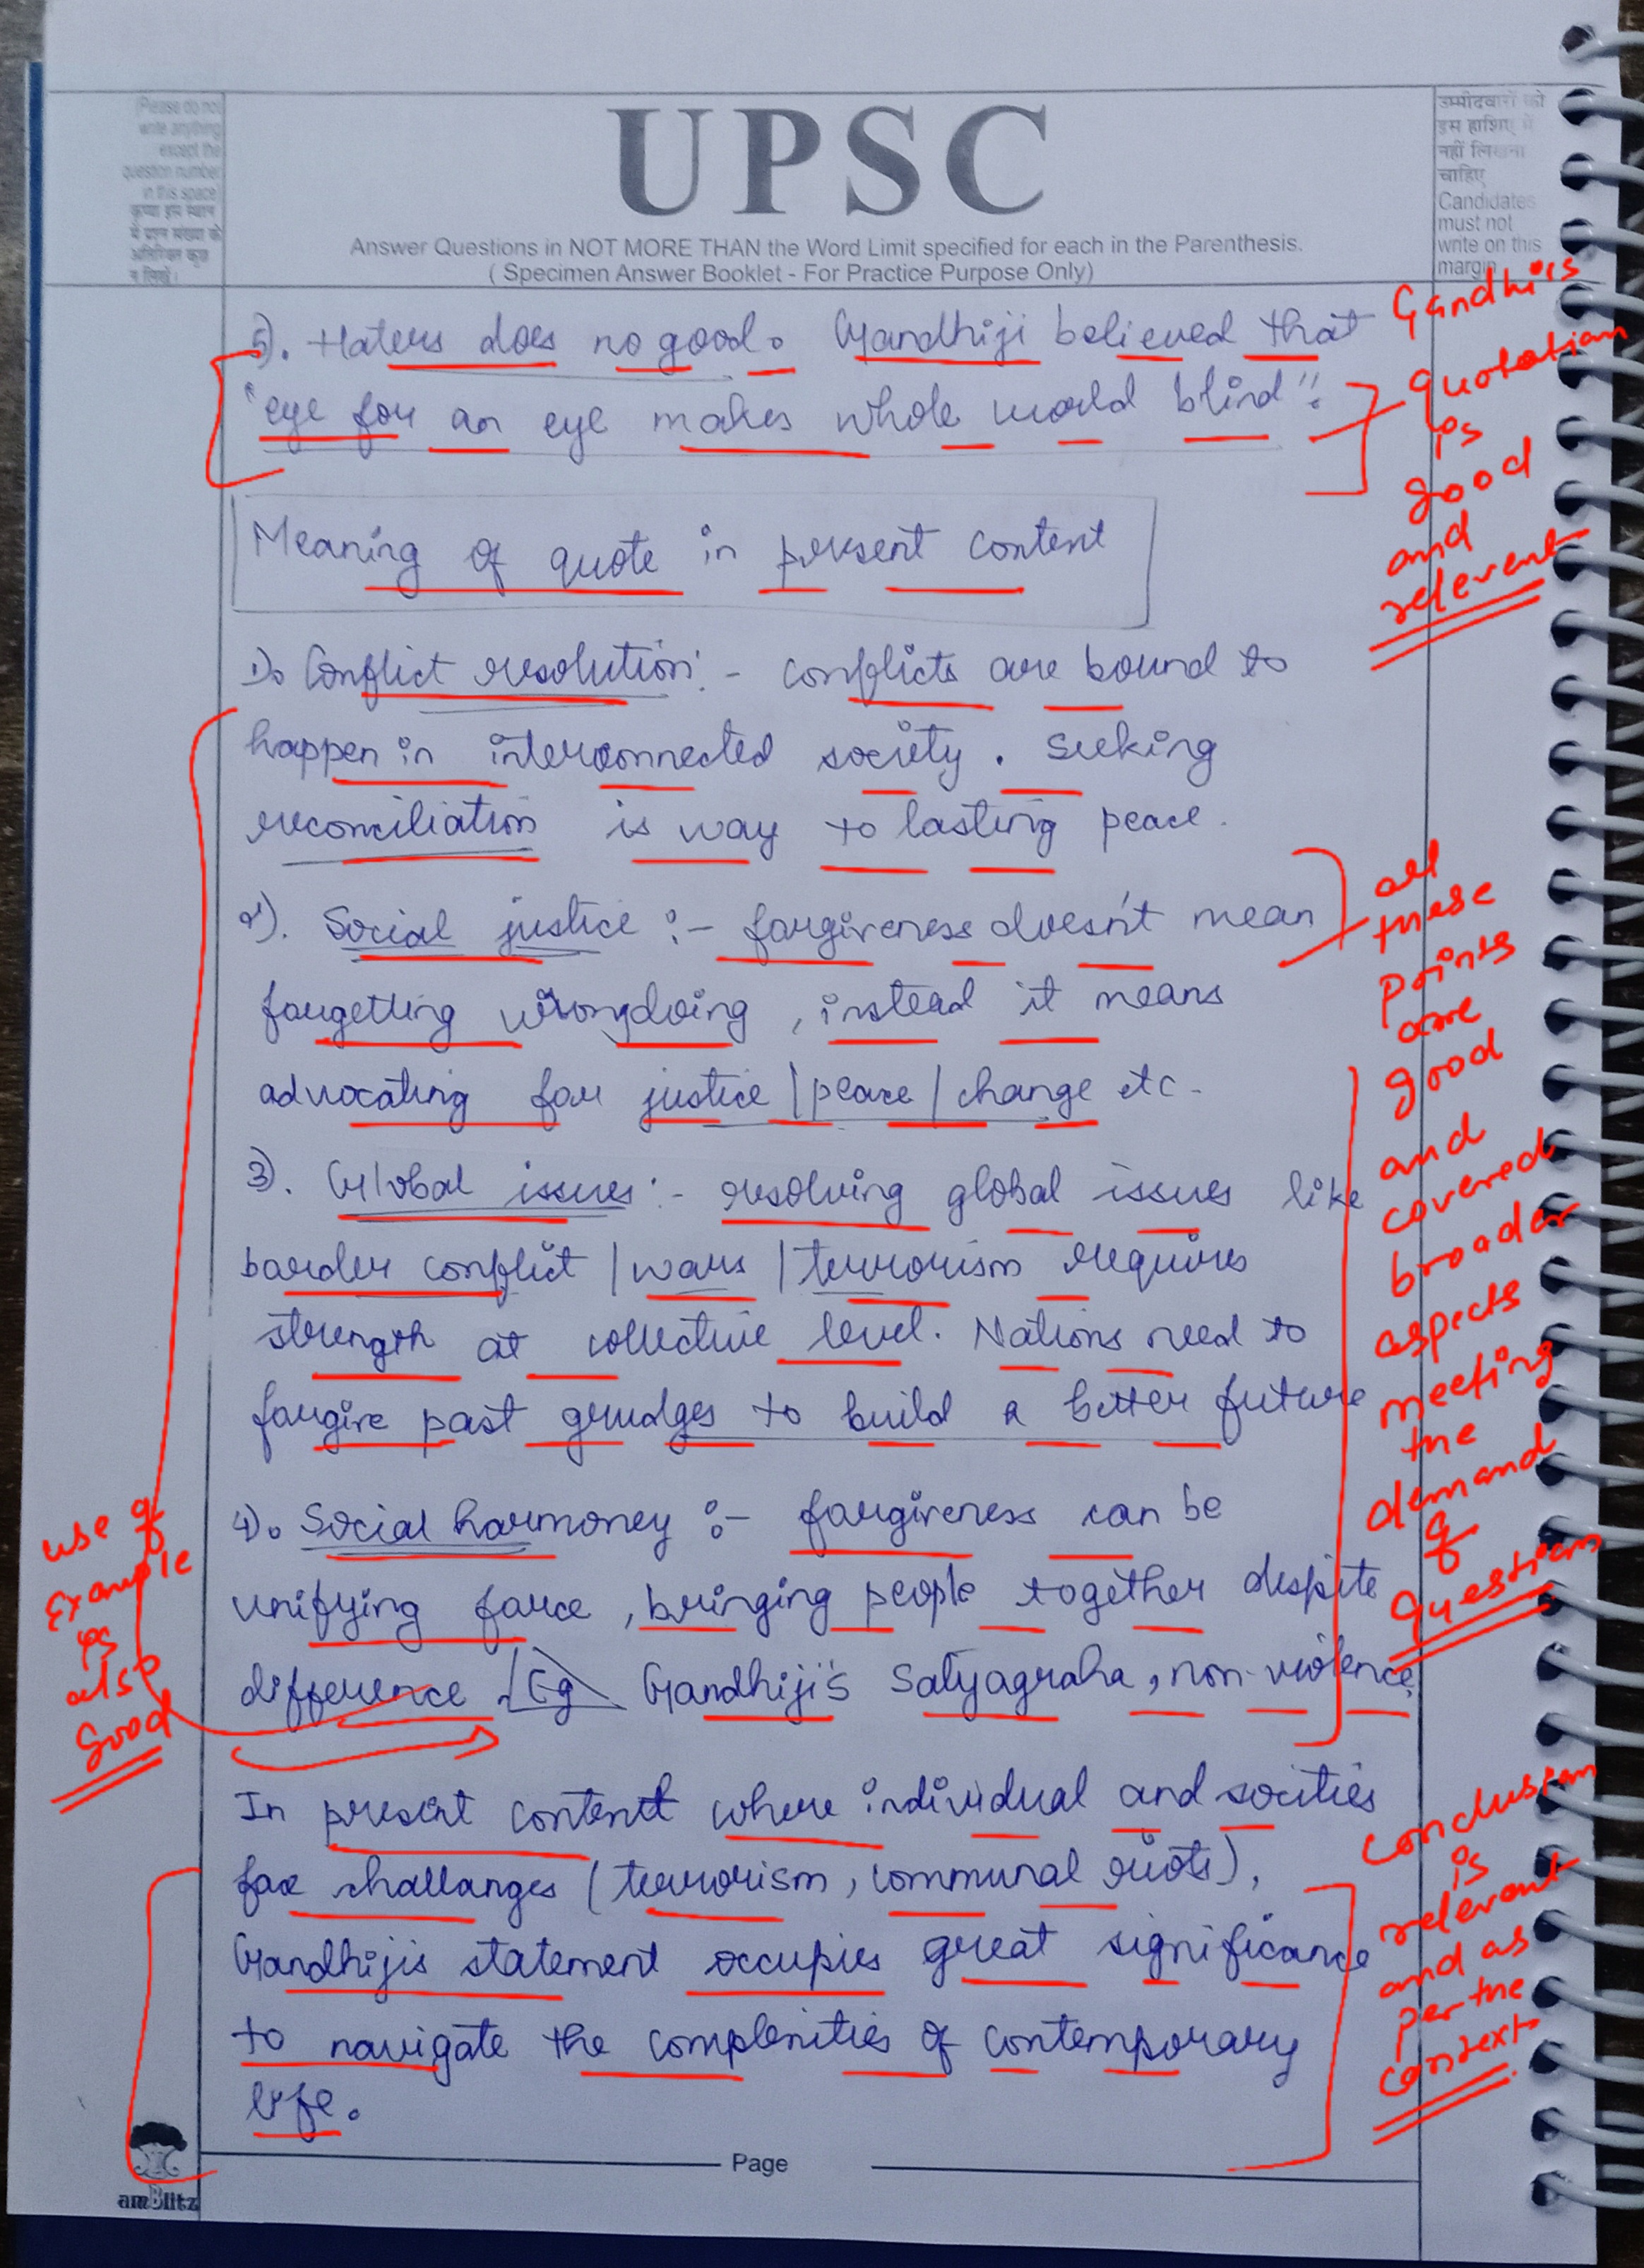 (Please do not
write anything
except the
question number
in this space
कृपया इस स्थान
में प्रश्न संख्या के
अतिरिक्त कुछ
न लिखें।
UPSC
Answer Questions in NOT MORE THAN the Word Limit specified for each in the Parenthesis.
( Specimen Answer Booklet - For Practice Purpose Only)
उम्मीदवारों को
इस हाशिए में
नहीं लिखना
चाहिए
Candidates
must not
write on this
margin
5). Haters does no good. Gandhiji believed that
"eye for an eye makes whole world blind".
Gandhi's
quotation
is
good
and
relevent
Meaning of quote in present content
1). Conflict resolution:- conflicts are bound to
happen in interconnected society. Seeking
reconciliation is way to lasting peace.
2). Social justice :- forgiveness doesn't mean
forgetting wrongdoing, instead it means
advocating for justice | peace | change etc.
3). Global issues:- resolving global issues like
border conflict | wars | terrorism requires
strength at collective level. Nations need to
forgive past grudges to build a better future
4). Social harmoney :- forgiveness can be
unifying force, bringing people together despite
difference Eg Gandhiji's Satyagraha, non-violence.
all
these
points
are
good
and
covered
broader
aspects
meeting
the
demand
of
question
use of
Example
is
also
Good
In present content where individual and socities
face challanges (terrorism, communal riots),
Gandhijis statement occupies great significance
to navigate the complenities of contemporary
life.
conclusion
is
relevant
and as
per the
context
Page
amBlitz